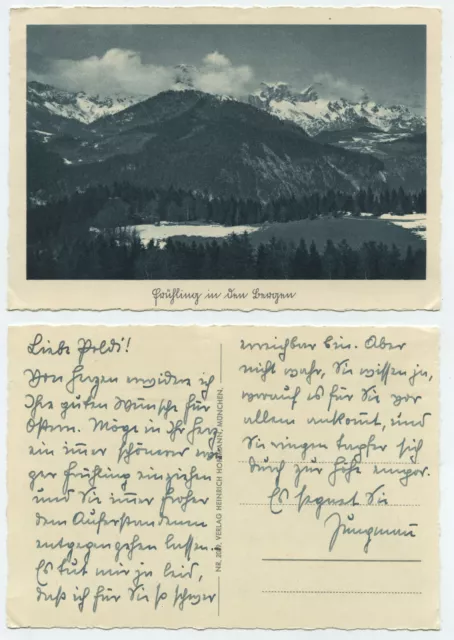 Frühling in den Bergen
Liebe Poldi!
Von Herzen erwidere ich
Ihre guten Wünsche für
Ostern. Möge in Ihr Herz
ein immer schönerer
Frühling einziehen
und Sie immer froher
dem Auferstandenen
entgegengehen lassen.
Es tut mir ja leid,
daß ich für Sie so schwer
NR. VERLAG HEINRICH HOFFMANN, MÜNCHEN
erreichbar bin. Aber
nicht wahr, Sie wissen ja,
worauf es für Sie vor
allem ankommt, und
Sie ringen tapfer sich
durch zur Höhe empor.
Es segnet Sie